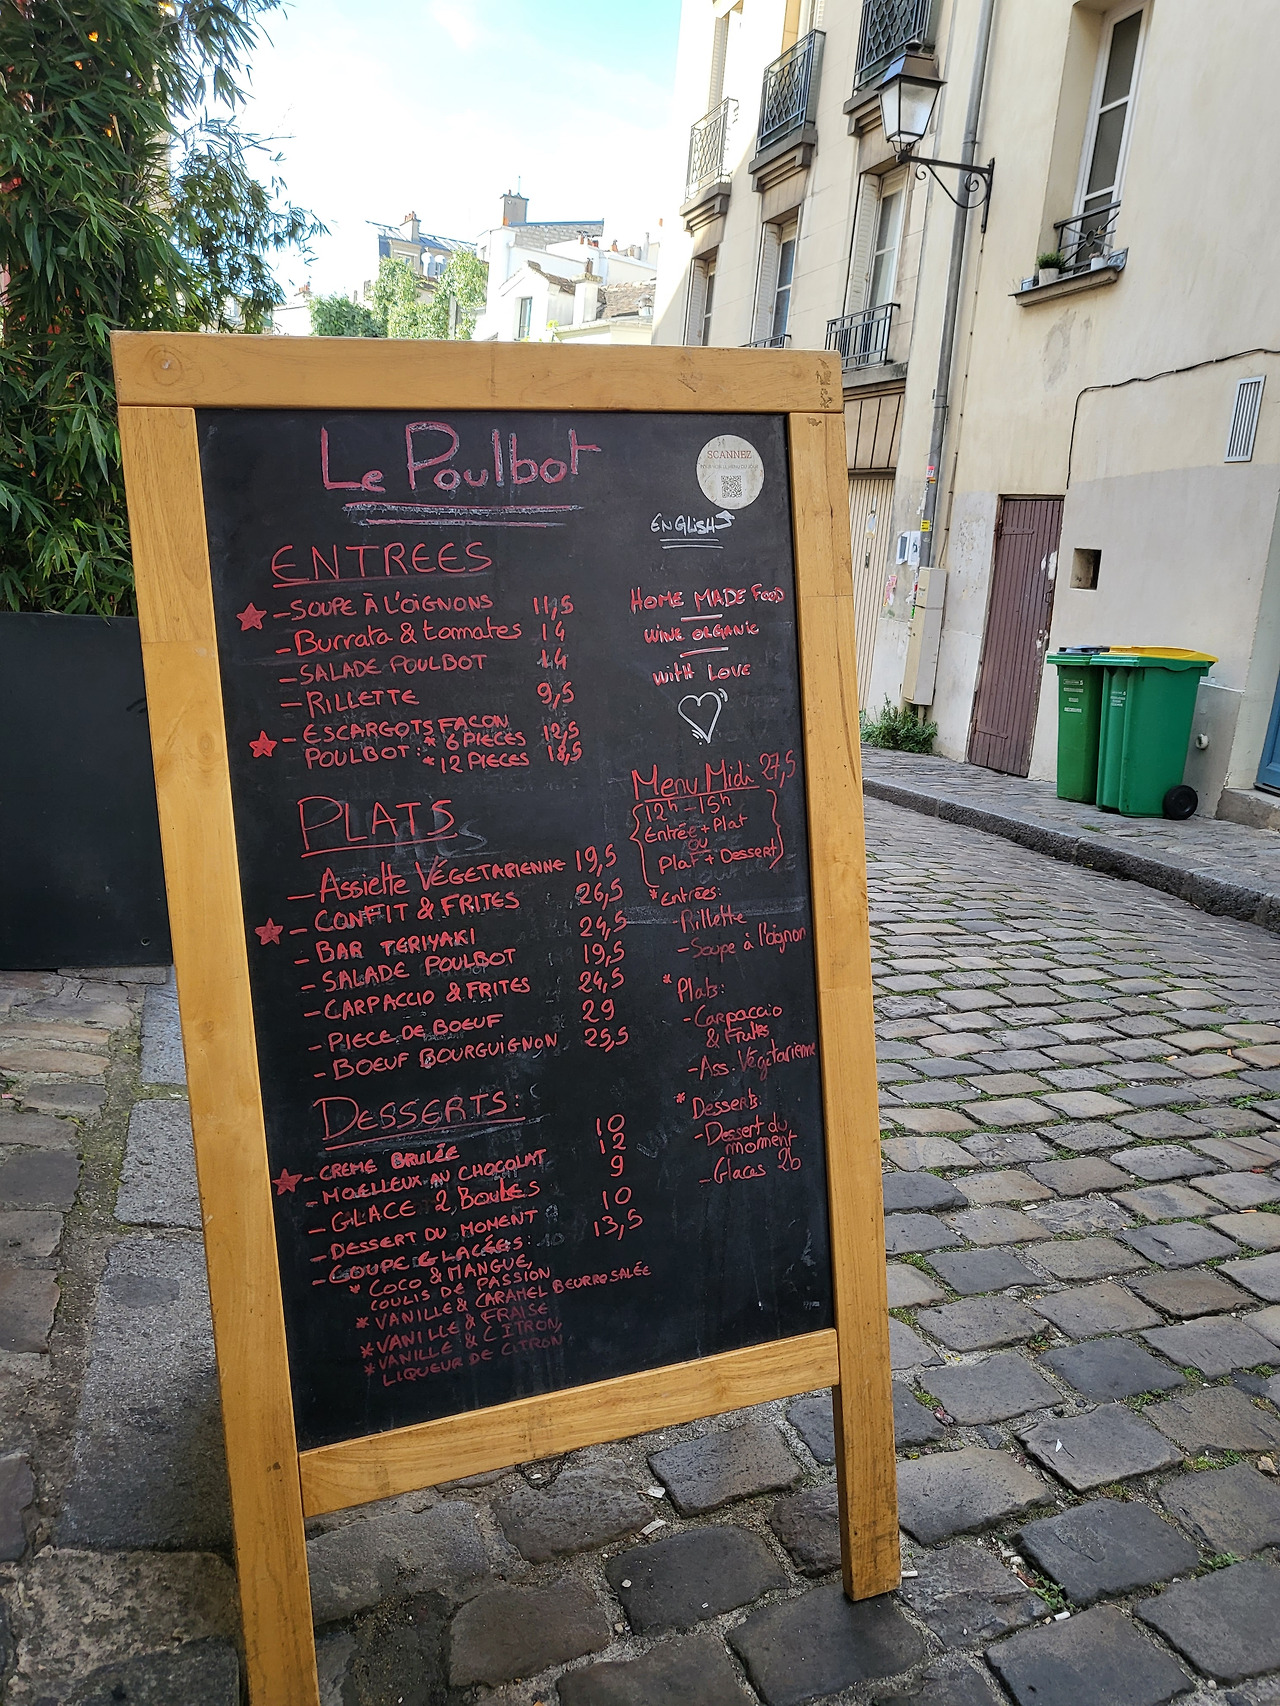 Le Poulbot
SCANNEZ
ENGLISH
ENTREES
- SOUPE À L'OIGNONS 11,5
- Burrata & tommates 14
- SALADE POULBOT 14
- RILLETTE 9,5
- ESCARGOTS FACON
POULBOT : * 6 PIECES 12,5
* 12 PIECES 18,5
PLATS
- Assiette VÉGETARIENNE 19,5
- CONFIT & FRITES 26,5
- BAR TERIYAKI 24,5
- SALADE POULBOT 19,5
- CARPACCIO & FRITES 24,5
- PIECE DE BOEUF 29
- BOEUF BOURGUIGNON 25,5
DESSERTS:
- CREME BRULÉE 10
- MOELLEUX AU CHOCOLAT 12
- GLACE 2 BOULES 9
- DESSERT DU MOMENT 10
- COUPE GLACÉES: 13,5
* COCO & MANGUE,
COULIS DE PASSION
* VANILLE & CARAMEL BEURRO SALÉE
* VANILLE & FRAISE
* VANILLE & CITRON,
LIQUEUR DE CITRON
HOME MADE FOOD
WINE ORGANIC
WITH LOVE
Menu Midi 27,5
12h - 15h
Entrée + Plat
ou
Plat + Dessert
* Entrées:
- Rillette
- Soupe à l'oignon
* Plats:
- Carpaccio
& Frites
- Ass. Végétarienne
* Desserts:
- Dessert du
moment
- Glaces 2b